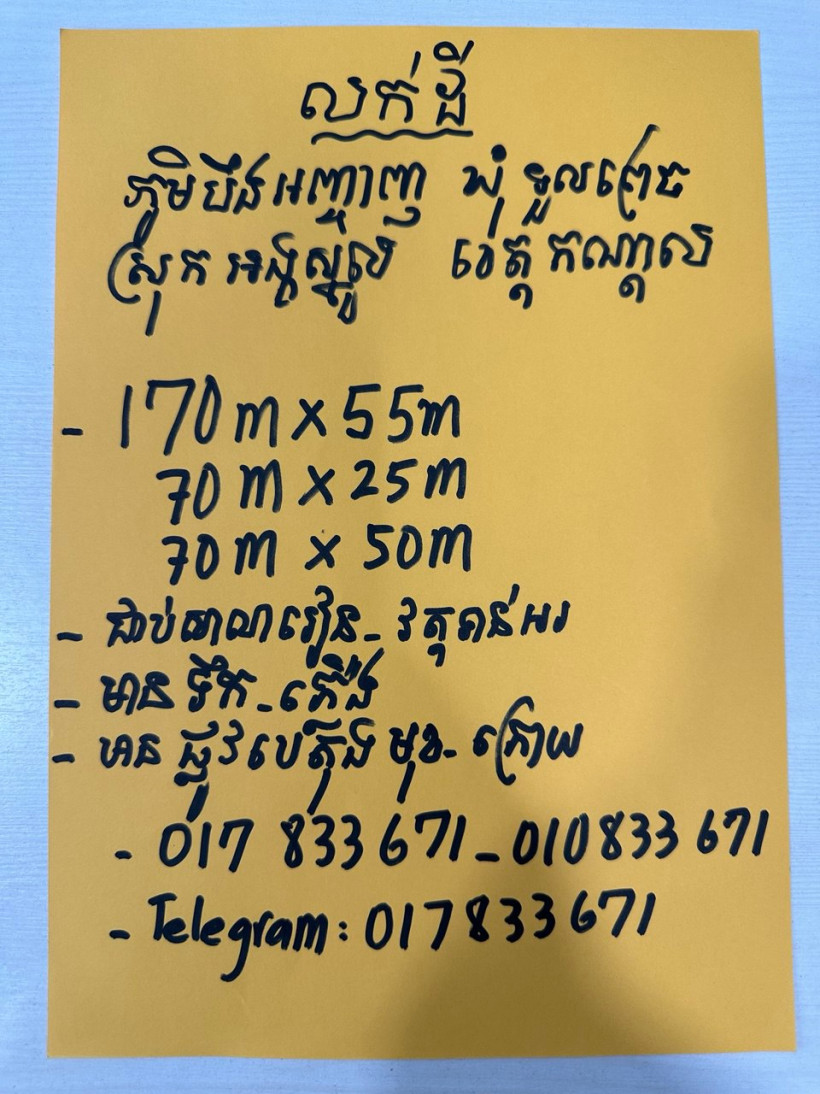 លក់ដី
ភូមិបឹងអញ្ចាញ ឃុំ ទួលព្រេច
ស្រុក អង្គស្នួល ខេត្ត កណ្តាល
- 170m x 55m
70m x 25m
70m x 50m
- ជាប់សាលារៀន - វត្តចាន់អរ
- មាន ទឹក - ភ្លើង
- មាន ផ្លូវបេតុង មុខ - ក្រោយ
- 017 833 671 - 010 833 671
- Telegram: 017 833 671